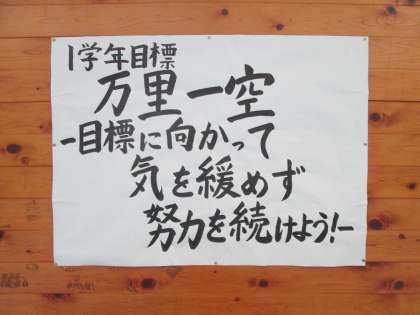 1学年目標
万里一空
-目標に向かって
気を緩めず
努力を続けよう!-